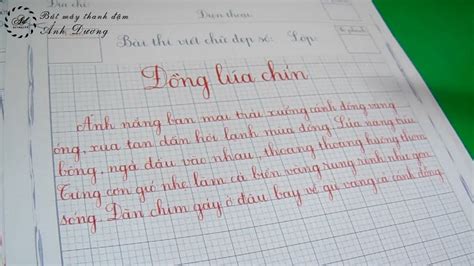 Bút máy thanh đậm
Ánh Dương
Địa chỉ:
Điện thoại:
Bài thi viết chữ đẹp số: Lớp:
Đồng lúa chín
Ánh nắng ban mai trải xuống cánh đồng vàng
óng, xua tan dần hơi lạnh mùa đông. Lúa nặng trĩu
bông, ngả đầu vào nhau, thoang thoảng hương thơm.
Từng cơn gió nhẹ làm cả biển vàng rung rinh như gợn
sóng. Đàn chim gáy ở đâu bay về gù vang cả cánh đồng.